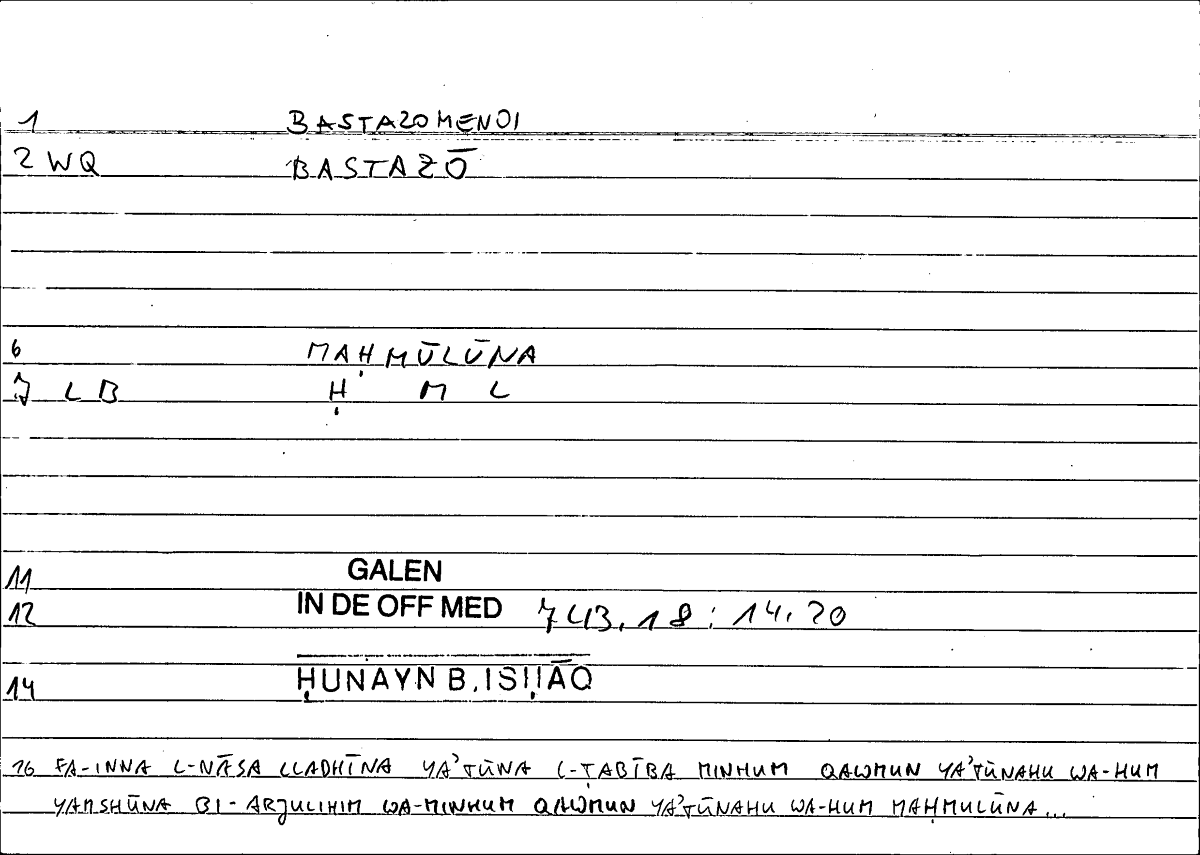 1 BASTAZOMENOI
2 WQ BASTAZŌ
6 MAḤMŪLŪNA
7 LB Ḥ M L
11 GALEN
12 IN DE OFF MED 743.18 : 14.20
14 ḤUNAYN B. ISḤĀQ
16 FA-INNA L-NĀSA LLADHĪNA YA'TŪNA L-ṬABĪBA MINHUM QAWMUN YA'TŪNAHU WA-HUM
YAMSHŪNA BI-ARJULIHIM WA-MINHUM QAWMUN YA'TŪNAHU WA-HUM MAḤMULŪNA...